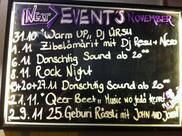 Next EVENTS NOVEMBER
31.10 Warm UP,, Dj URSU
1.11. Zibelämärit mit Dj Resu + Nero
6.11. Donschtig Sound ab 20⁰⁰
8.11. Rock Night
13+20+27.11 Donschtig Sound ab 20⁰⁰
21.11. "Qeer Beet" Music wo fägt
29.11 25 Geburi Rössli mit JOHN AND